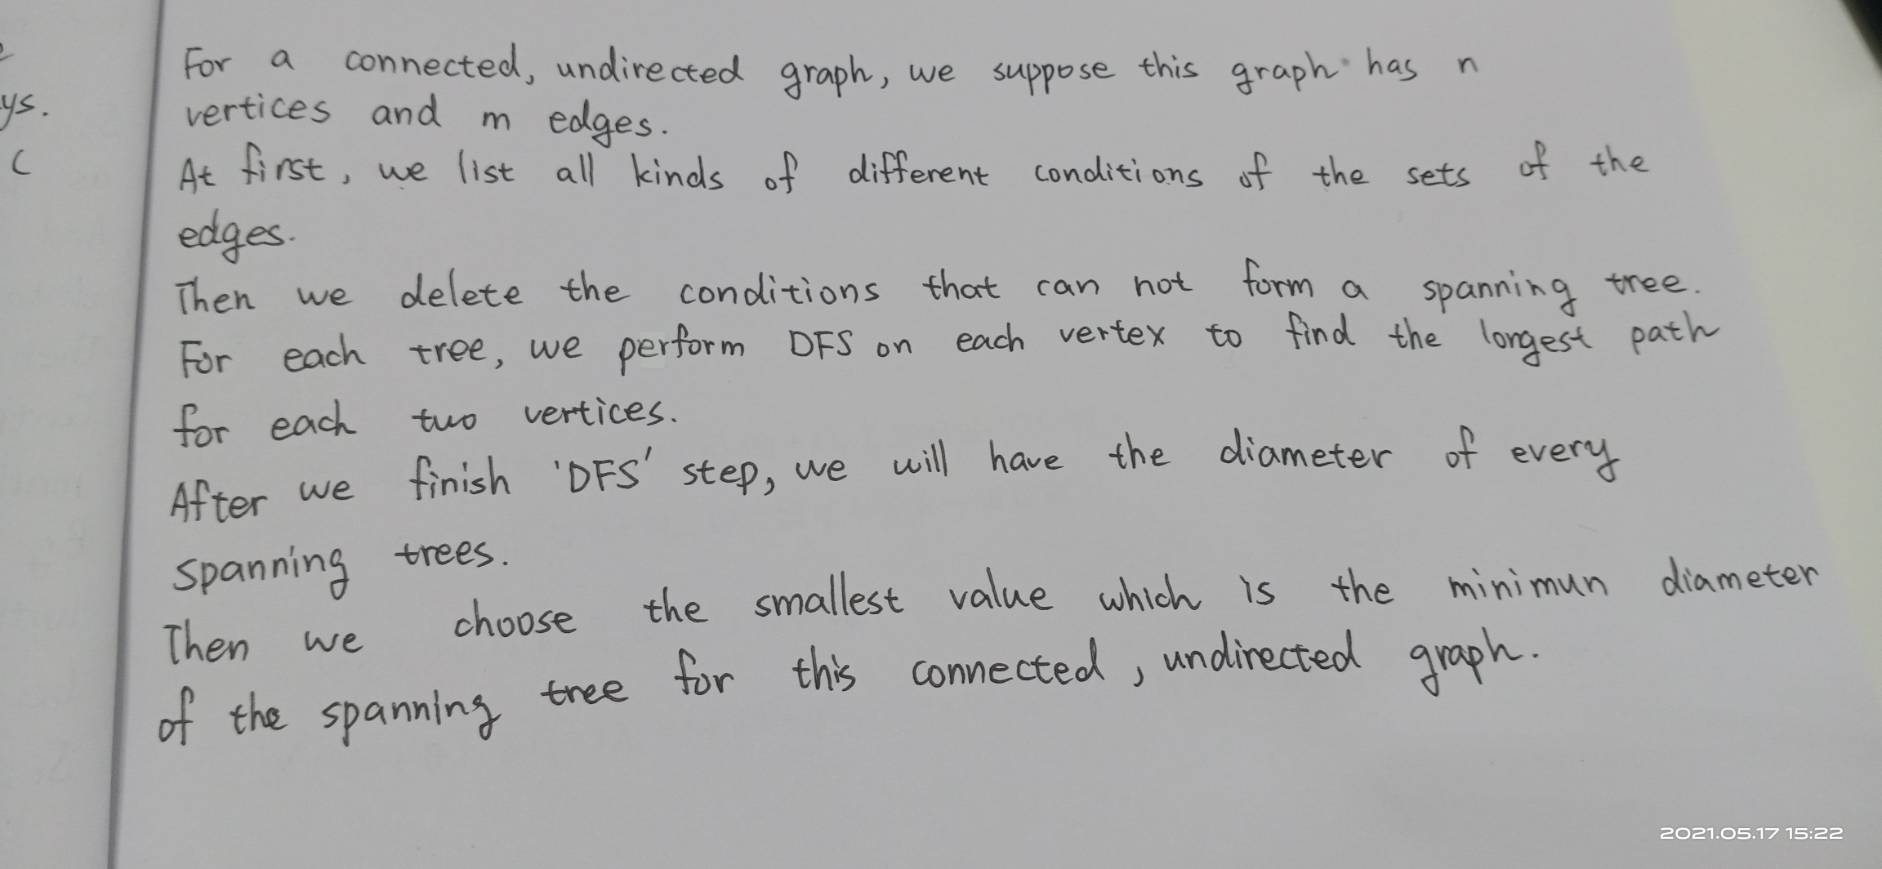 ys.
For a connected, undirected graph, we suppose this graph has n
vertices and m edges.
At first, we list all kinds of different conditions of the sets of the
edges.
Then we delete the conditions that can not form a spanning tree.
For each tree, we perform DFS on each vertex to find the longest path
for each two vertices.
After we finish 'DFS' step, we will have the diameter of every
spanning trees.
Then we choose the smallest value which is the minimun diameter
of the spanning tree for this connected, undirected graph.
2021.05.17 15:22